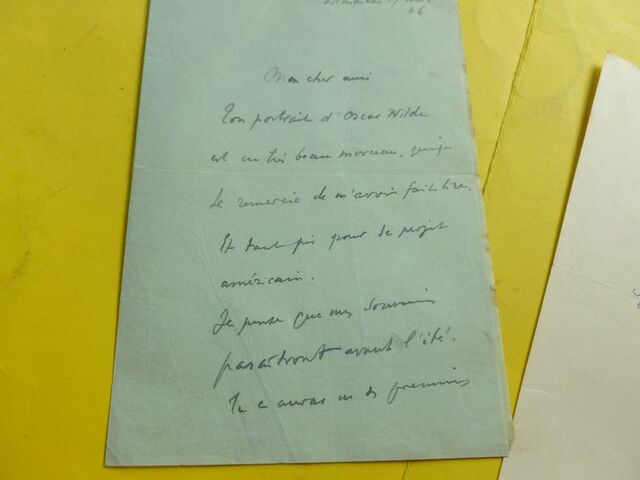 Dimanche 17 mars
46
Mon cher ami
Ton portrait d'Oscar Wilde
est un très beau morceau, que je
te remercie de m'avoir fait lire.
Et tant pis pour le projet
américain.
Je pense que mes souvenirs
paraîtront avant l'été.
Tu en auras un des premiers